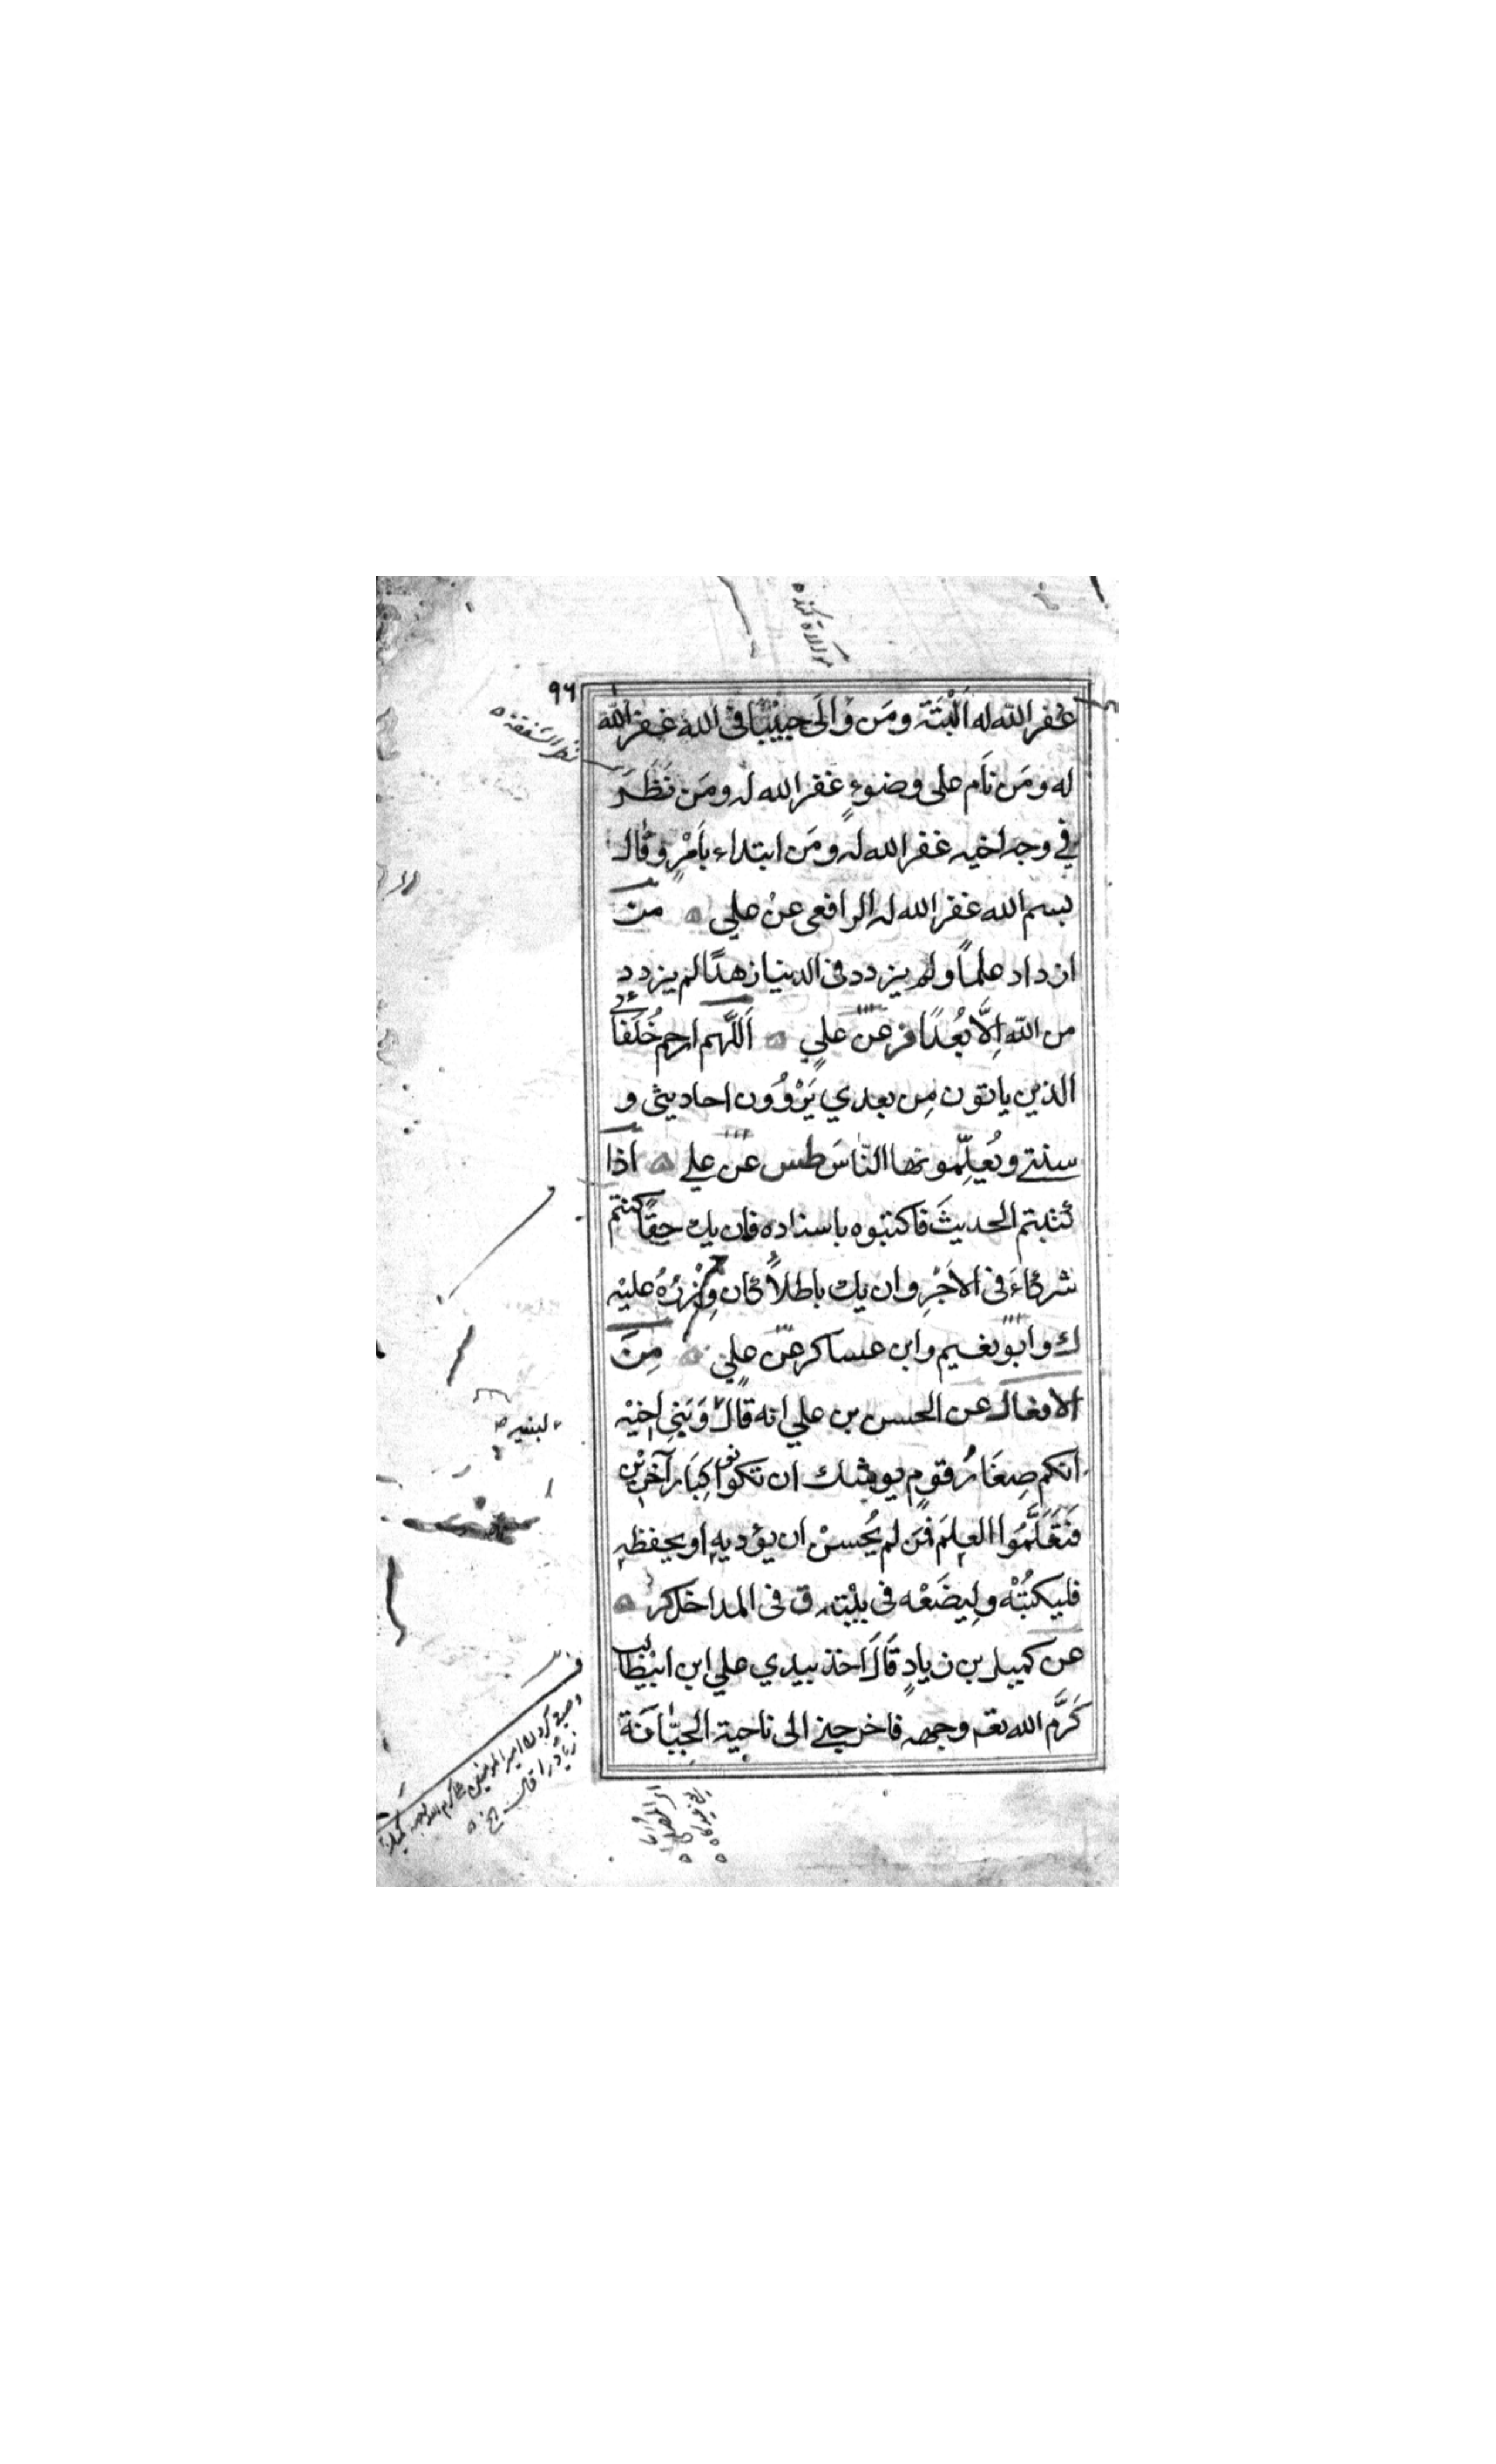 ٩٦
غفر الله له اَلْبَتَّة ومَن وَالَى حبيْبًا فى الله غفر الله
نظر الشفقة
له ومَن نَام على وضوءٍ غفر الله له ومَن نَظَرَ
في وجه اخيه غفر الله له ومَن ابتداء بأمْرٍ وقال
بسم الله غفر الله له الرافعى عنْ علي من
ازداد علمًا ولم يزدد فى الدنيا زهدًا لم يزدد
من الله اِلَّا بُعْدًا فر عن علي اَللّٰهم ارحم خُلَفائي
الذين ياتون مِن بعدي يَرْوُون احاديثى و
سنتي ويُعلِّمونها النَّاسَ طس عن علي اذا
كتبتم الحديثَ فاكتبوه باسناده فان يك حقًا كنتم
شركاءَ فى الاَجْرِ وان يك باطلاً كان وِزْرُهُ عليْه
ك وابو نعيم وابن عساكر عن علي مِنَ
الافعال عن الحسن بن علي انه قالَ وَبَنِى اخيْه
لبنيه
انكم صِغَارُ قومٍ يوشك ان تكونوا كِبَار آخَرِيْن
فَتَعَلَّمُوا العِلمَ فمَن لم يُحسنْ ان يؤديهِ او يحفظهِ
فليكتُبْه ولِيضَعْه فى بيْته ق فى المدخل كر
عن كميل بن زيادٍ قَالَ اخذ بيدي علي ابن ابيْطالب
كَرَّم الله تعم وجهه فاخرجني الى ناحية الجبَّانة